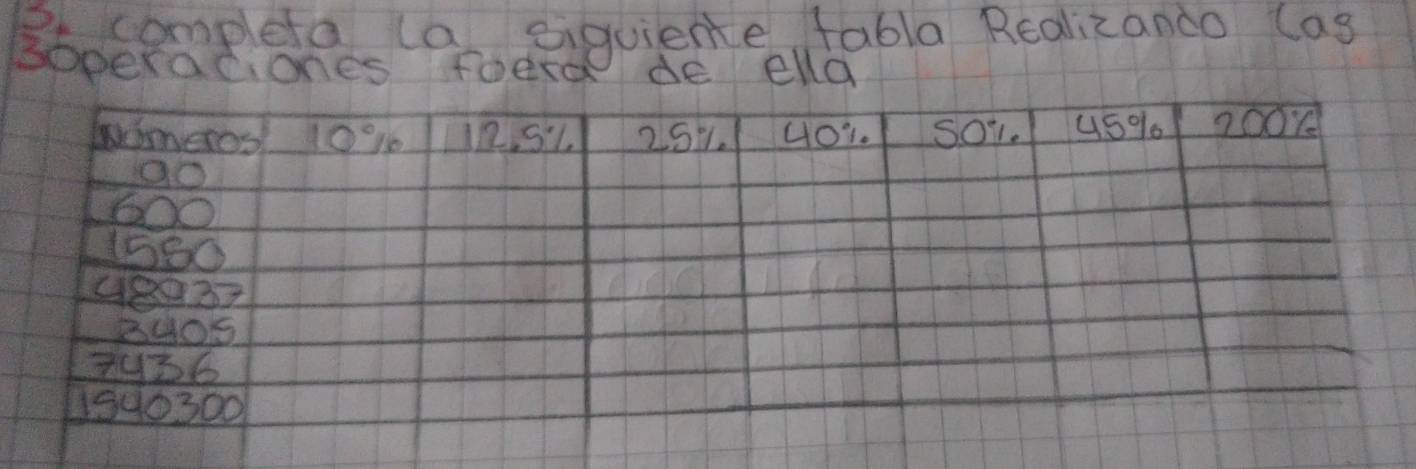 3. completa la siguiente tabla Realizando las
3operaciones foera de ella
Números 10% 12,5% 25% 40% 50% 45% 200%
90
600
1550
48937
3405
7436
1540300